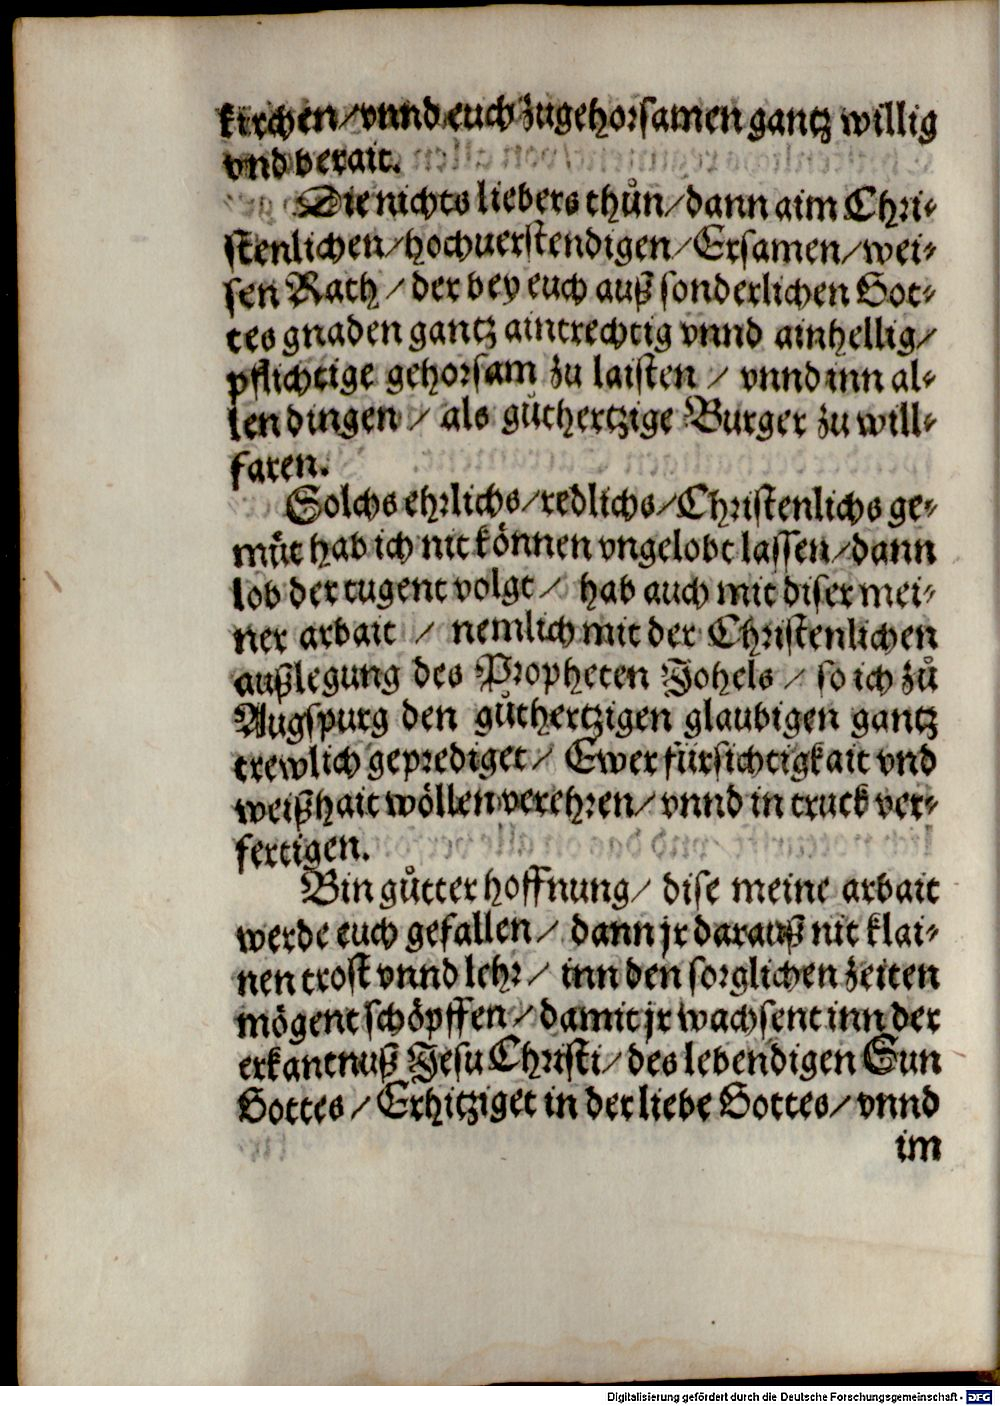 kirchen/ vnnd euch zugehorsamen gantz willig
vnd berait.
Die nichts liebers thůn/ dann aim Chri⸗
stenlichen/ hochuerstendigen/ Ersamen/ wei⸗
sen Rath/ der bey euch auß sonderlichen Got⸗
tes gnaden gantz aintrechtig vnnd ainhellig/
pflichtige gehorsam zu laisten/ vnnd inn al⸗
len dingen/ als gůthertzige Burger zu will⸗
faren.
Solchs ehrlichs/ redlichs/ Christenlichs ge⸗
můt hab ich nit können vngelobt lassen/ dann
lob der tugent volgt/ hab auch mit diser mei⸗
ner arbait/ nemlich mit der Christenlichen
außlegung des Propheten Johels/ so ich zů
Augspurg den gůthertzigen glaubigen gantz
trewlich geprediget/ Ewer fürsichtigkait vnd
weißhait wöllen verehren/ vnnd in truck ver⸗
fertigen.
Bin gůtter hoffnung/ dise meine arbait
werde euch gefallen/ dann jr darauß nit klai⸗
nen trost vnnd lehr/ inn den sorglichen zeiten
mögent schöpffen/ damit jr wachsent inn der
erkantnuß Jesu Christi/ des lebendigen Sun
Gottes/ Erhitziget in der liebe Gottes/ vnnd
im
Digitalisierung gefördert durch die Deutsche Forschungsgemeinschaft - DFG